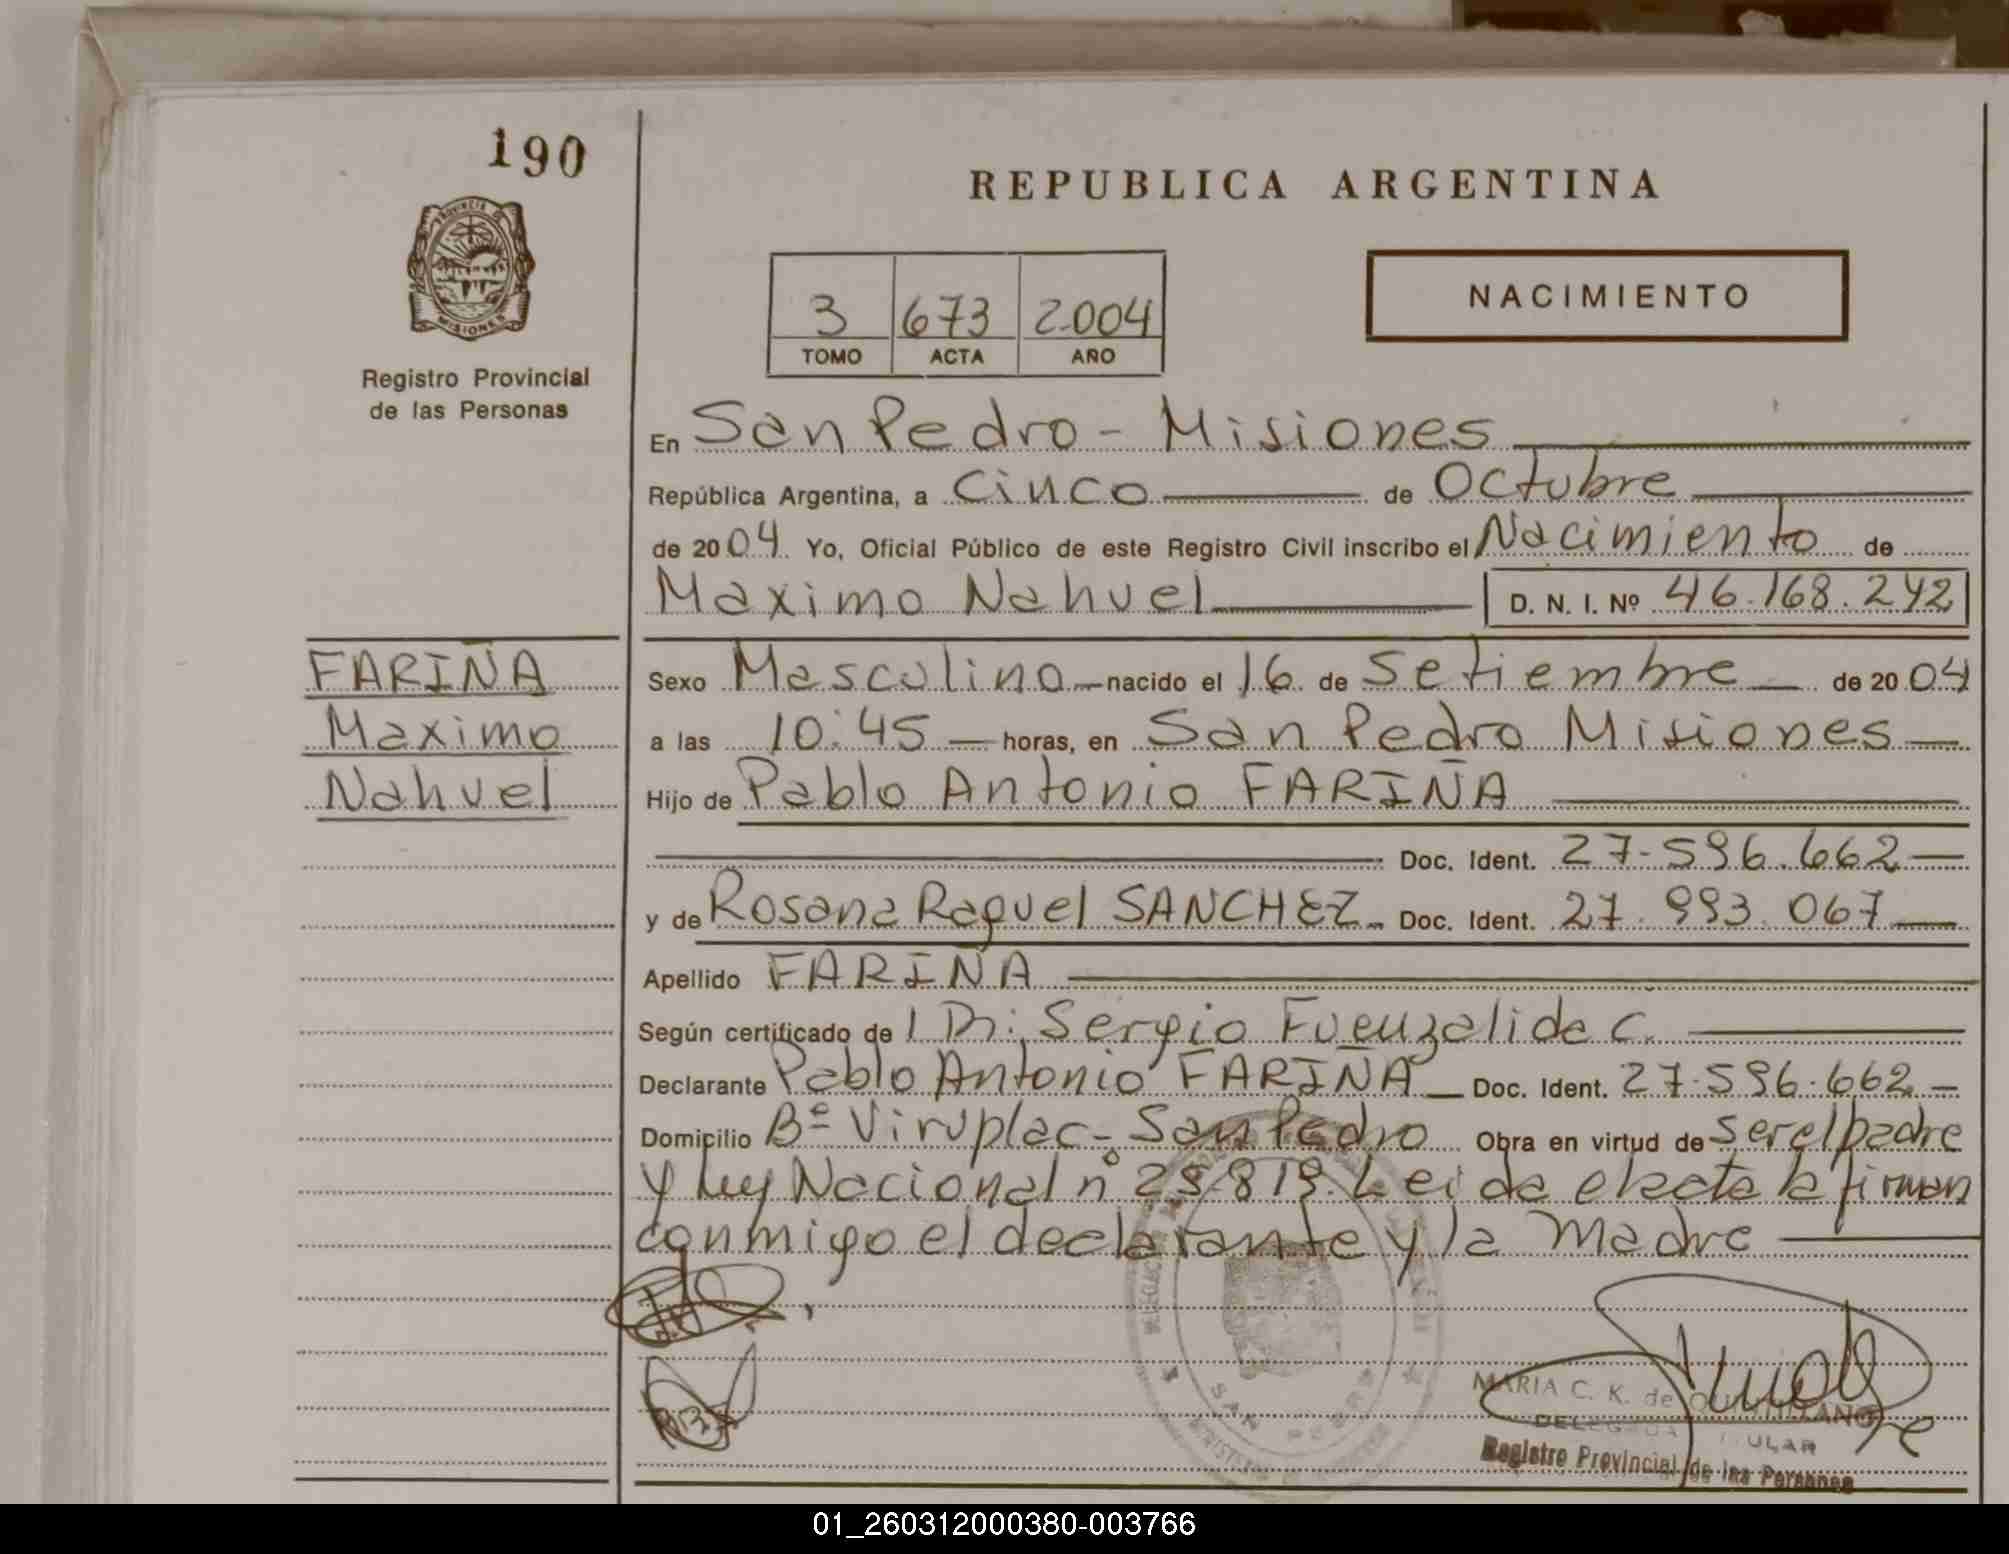 190
REPUBLICA ARGENTINA
PROVINCIA DE
MISIONES
Registro Provincial
de las Personas
3 673 2.004
TOMO ACTA AÑO
NACIMIENTO
En San Pedro - Misiones
República Argentina, a Cinco de Octubre
de 2004 Yo, Oficial Público de este Registro Civil inscribo el Nacimiento de
Maximo Nahuel D. N. I. Nº 46.168.242
FARIÑA
Maximo
Nahuel
Sexo Masculino nacido el 16 de Setiembre de 2004
a las 10:45 horas, en San Pedro Misiones
Hijo de Pablo Antonio FARIÑA
Doc. Ident. 27.596.662
y de Rosana Raquel SANCHEZ Doc. Ident. 27.993.067
Apellido FARIÑA
Según certificado de Dr: Sergio Fuenzalida C.
Declarante Pablo Antonio FARIÑA Doc. Ident. 27.596.662
Domicilio Bº Viruplac - San Pedro Obra en virtud de ser el padre
y Ley Nacional nº 25.819. Leida el acta la firman
conmigo el declarante y la madre
SAN PEDRO
MARIA C. K. de
DELEGADA TITULAR
Registro Provincial de las Personas
01_260312000380-003766